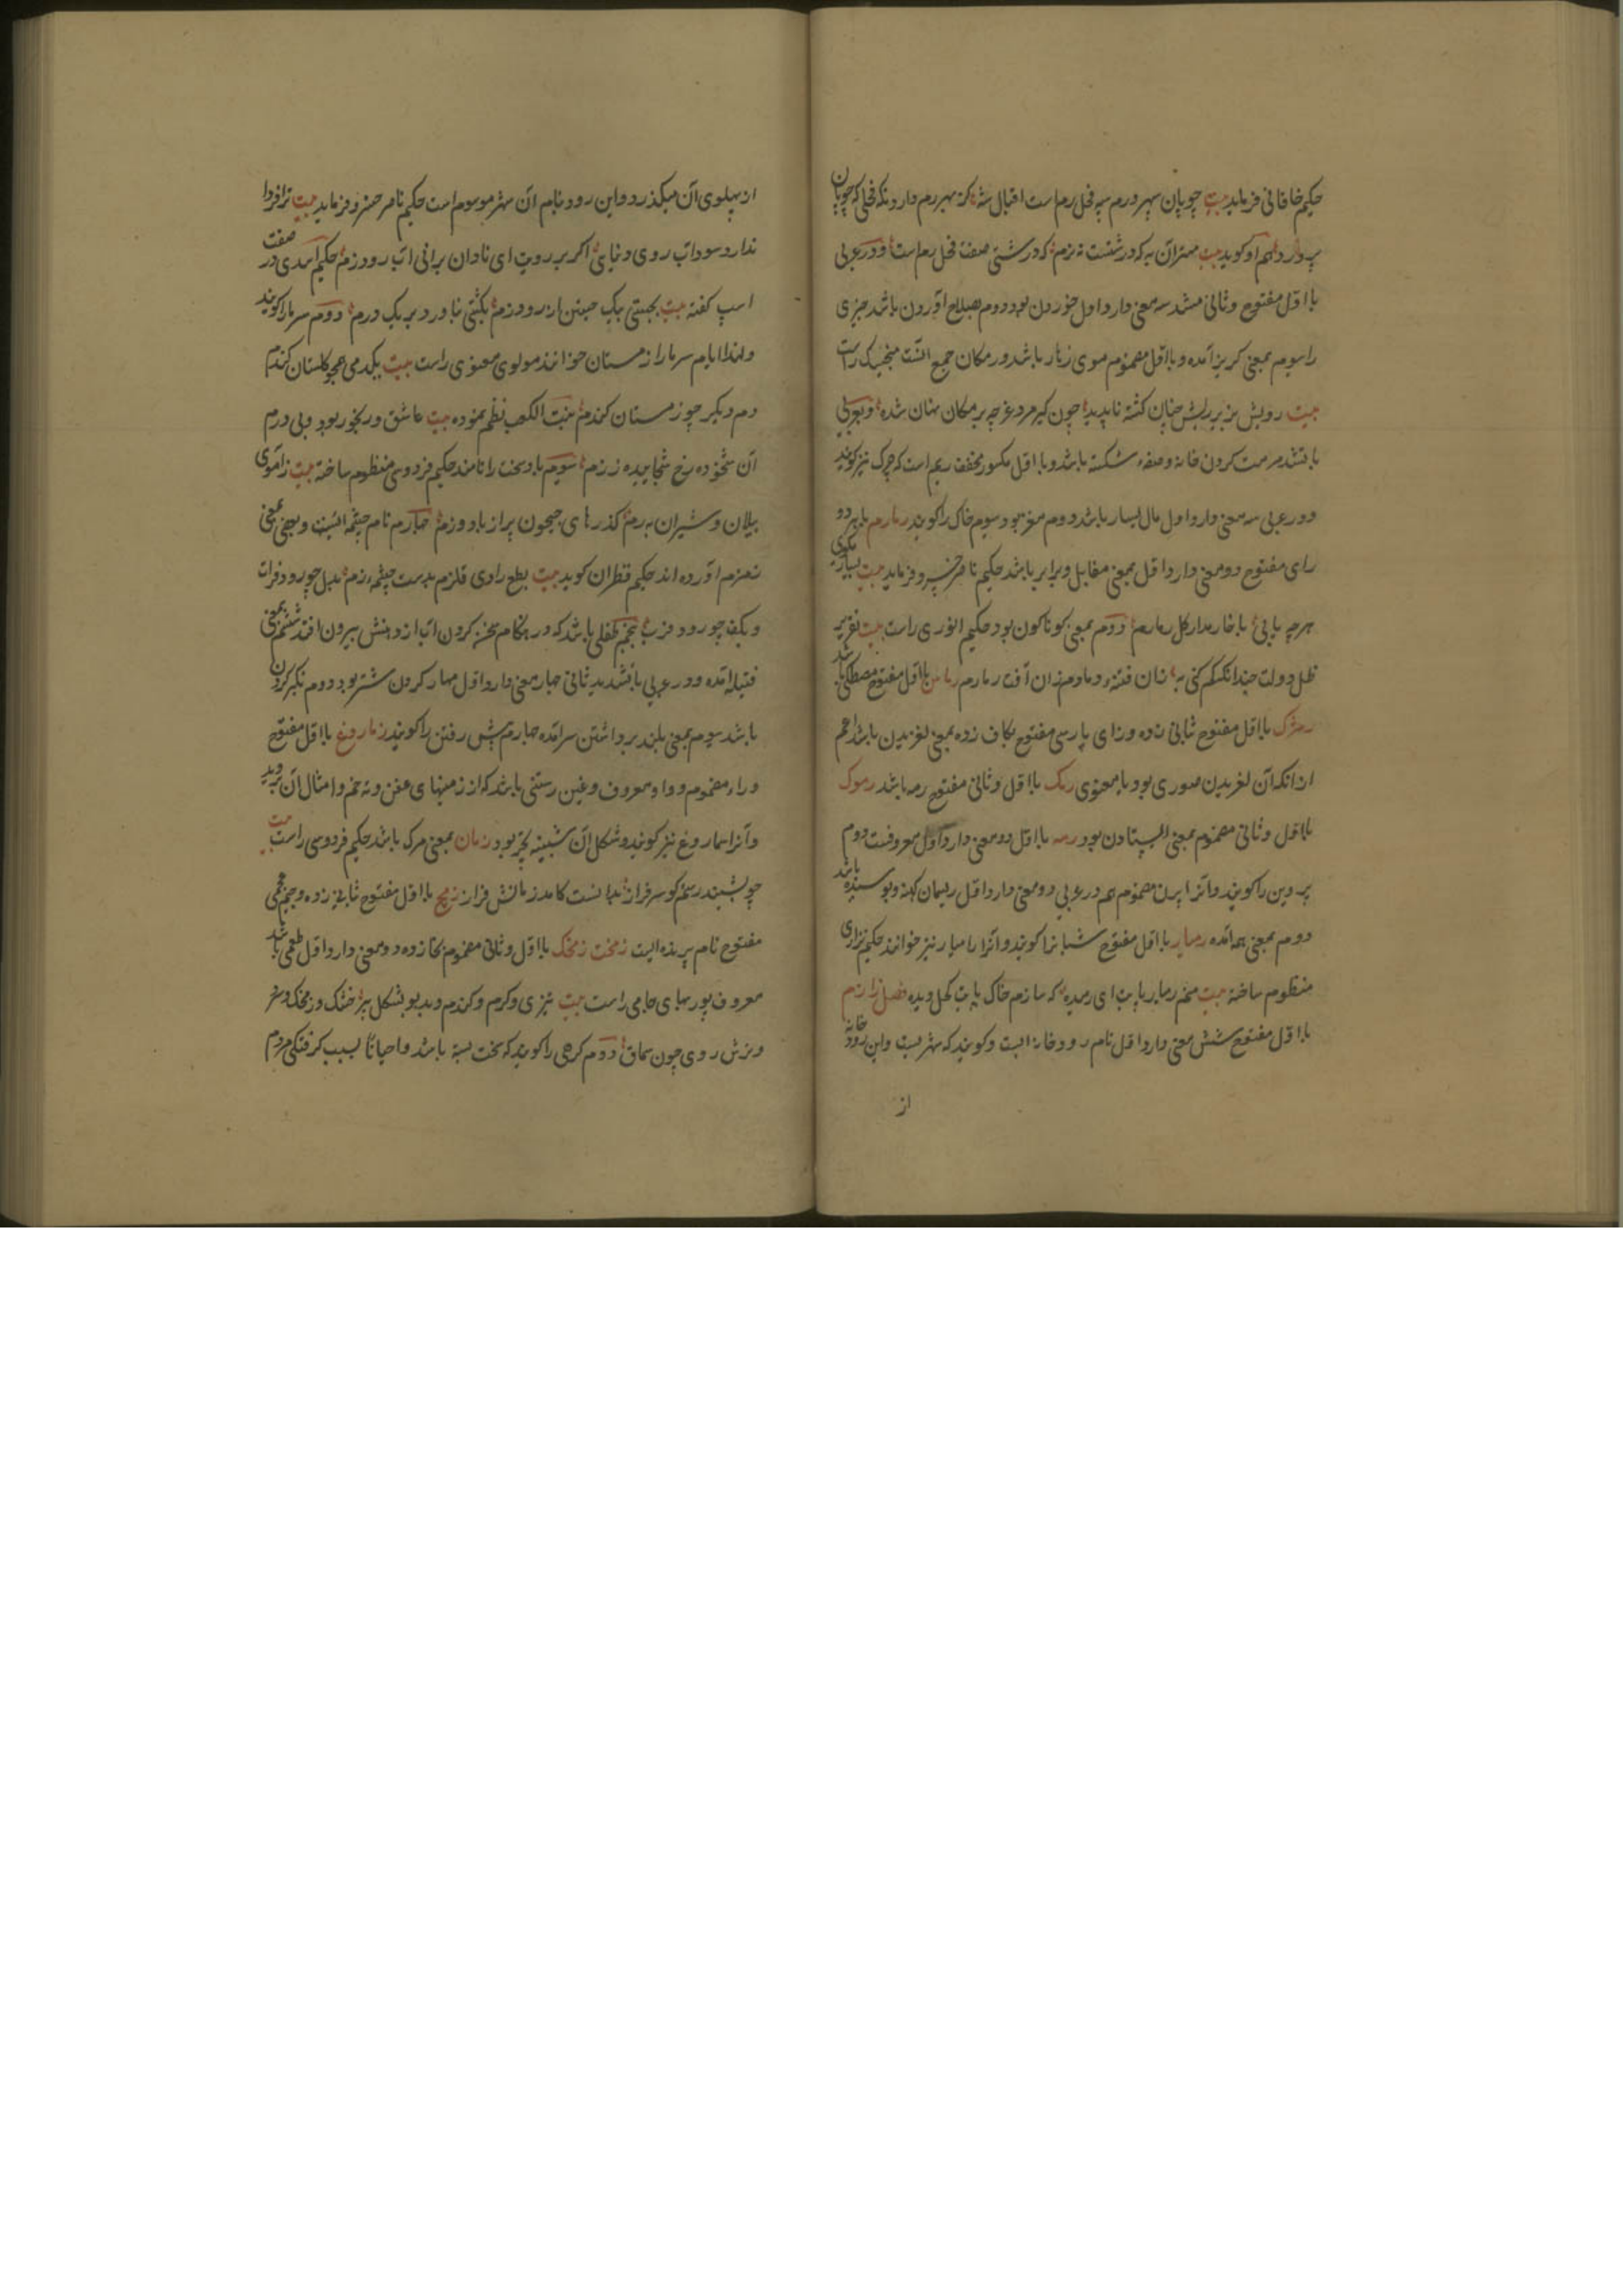 حکیم خاقانی فرماید بیت چوپان سپهر درم سیه فحل رم است اقبال شه کز سپهر رم دارد نکه فحلی که چوپان
پرورد هم او کوید بیت مهتر آن به که درشتست نه نرم که درشتی صفت فحل رم است و در عربی
با اول مفتوح و ثانی مشدد سه معنی دارد اول خوردن بود دوم بصلاح آوردن باشد چیزی
را سیوم بمعنی کریز آمده و با اول مضموم موی زهار باشد و رمکان جمع آنست منجیک راست
بیت رویش بزیر ریش چنان کشته ناپدید چون کیر مرد غرچه برمکان نهان شده و بعربی
با تشدید مرمت کردن خانه و صفه شکسته باشد و با اول مکسور مخفف ریم است که چرک نیز کویند
و در عربی سه معنی دارد اول مال بسیار باشد دوم مغز بود سیوم خاک را کویند رمارم با هر دو
رای مفتوح دو معنی دارد اول بمعنی مقابل و برابر باشد حکیم ناصر خسرو فرماید بیت بسیار مکوی
هرچه یابی با خار مدار کل رمارم دوم بمعنی کوناکون بود حکیم انوری راست بیت
ظل دولت چندانکه کم کنی به زان فتنه دمادم زان آفت رمارم رماس با اول مفتوح مصطکی باشد
رمژک با اول مفتوح ثانی زده و زای پارسی مفتوح بکاف زده بمعنی لغزیدن باشد اعم
از انکه آن لغزیدن صوری بود یا معنوی رمک با اول و ثانی مفتوح رمه باشد رموک
با اول و ثانی مضموم بمعنی ایستادن بود رمه با اول دو معنی دارد اول معروفست دوم
پروین را کویند و آنرا پرن مضموم هم در عربی دو معنی دارد اول ریسمان کهنه و پوسیده باشد
دوم بمعنی همه آمده رمیار با اول مفتوح شبانرا کویند و آنرا رامیار نیز خوانند حکیم نزاری
منظوم ساخته بیت منم رمیار یا بت ای رمیده که سازم خاک پایت کحل دیده فصل زا رزم
با اول مفتوح شش معنی دارد اول نام رودخانه ایست و کویند که شهریست و این رود خانه
از
از پهلوی آن میکذرد و این رود بنام آن شهر موسوم است حکیم ناصر خسرو فرماید بیت ترا فردا
ندارد سود آب روی دنیایی اکر بر رویت ای نادان برانی آب رود زم حکیم اسدی در صفت
اسپ کفته بیت بجستی بیک جستن از رود زم بکشتی بناورد بر یک درم دوم سرما را کویند
و لهذا ایام سرما را زمستان خوانند مولوی معنوی راست بیت یکدمی همچو کلستان کندم
دم دیکر چو زمستان کندم بنت الکعب نظم نموده بیت عاشق و رنجور بود و بی درم
آن شخوده رخ شخاییده ز زم سیوم باد سخت را نامند حکیم فردوسی منظوم ساخته بیت ز آموی
پیلان و شیران برم کذرهای جیحون پر از باد و زم چهارم نام چشمه ایست و بمعنی
زمزم آورده اند حکیم قطران کوید بیت بطبع رادی قلزم بدست چشمه زم بدل چو رود فرات
و بکف چو رود فرب پنجم طفلی باشد که در هنکام سخن کردن آب از دهنش بیرون افتد ششم بمعنی
فتیله آمده و در عربی با تشدید ثانی چهار معنی دارد اول مهار کردن شتر بود دوم تکبر کردن
باشد سیوم بمعنی بلند برداشتن سر آمده چهارم پیش رفتن را کویند زماروغ با اول مفتوح
و راء مضموم و واو معروف و غین رستنی باشد که از زمینهای عفن و نه خم و امثال آن بروید
و آنرا سماروغ نیز کویند و شکل آن شبیه بچتر بود زمان بمعنی مرک باشد حکیم فردوسی راست بیت
چو بشنید رستم کو سرفراز بدانست کامد زمانش فراز زمج با اول مفتوح ثانی زده و جیم عجمی
مفتوح نام پرنده ایست زمخت زمخک با اول و ثانی مضموم بخا زده دو معنی دارد اول طعمی باشد
معروف پور بهای جامی راست بیت تیزی و کرم و کندم و بدبو بشکل پیر خشک و زمخک و سر
و ترش روی چون سماق دوم کرهی را کویند که سخت بسته باشد و احیانا بسبب کرفتکی مردم